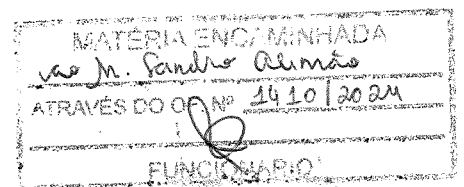 MATÉRIA ENCAMINHADA
ao Sr. Sandro Alemão
ATRAVÉS DO OF. Nº 1410/2024
FUNCIONÁRIO